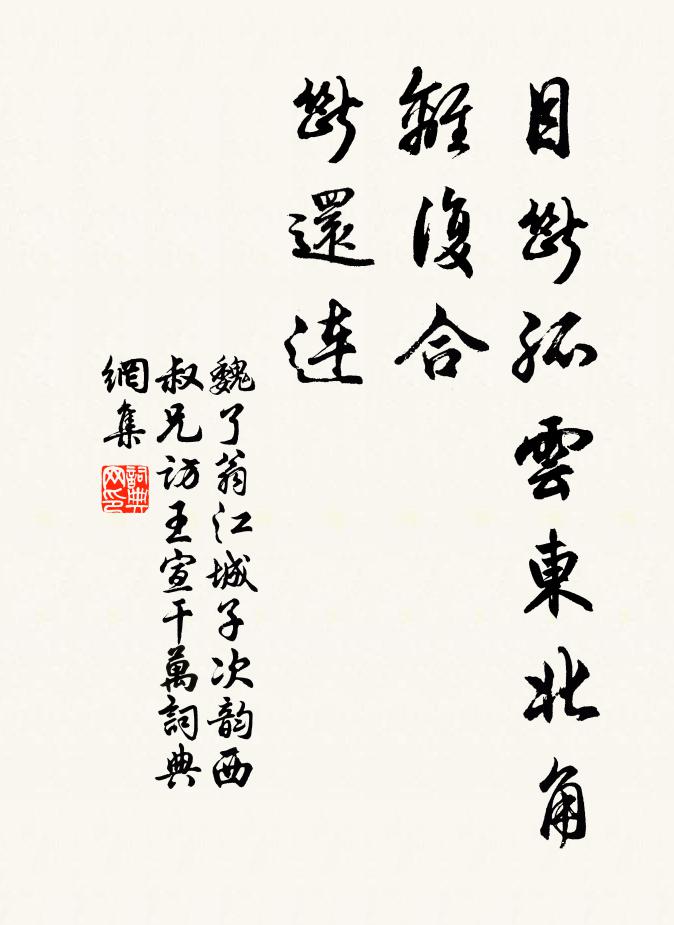 目斷孤雲東北角
離復合
斷還连
魏了翁江城子次韵西
叔兄访王宣干萬詞典
網集
詞典網印